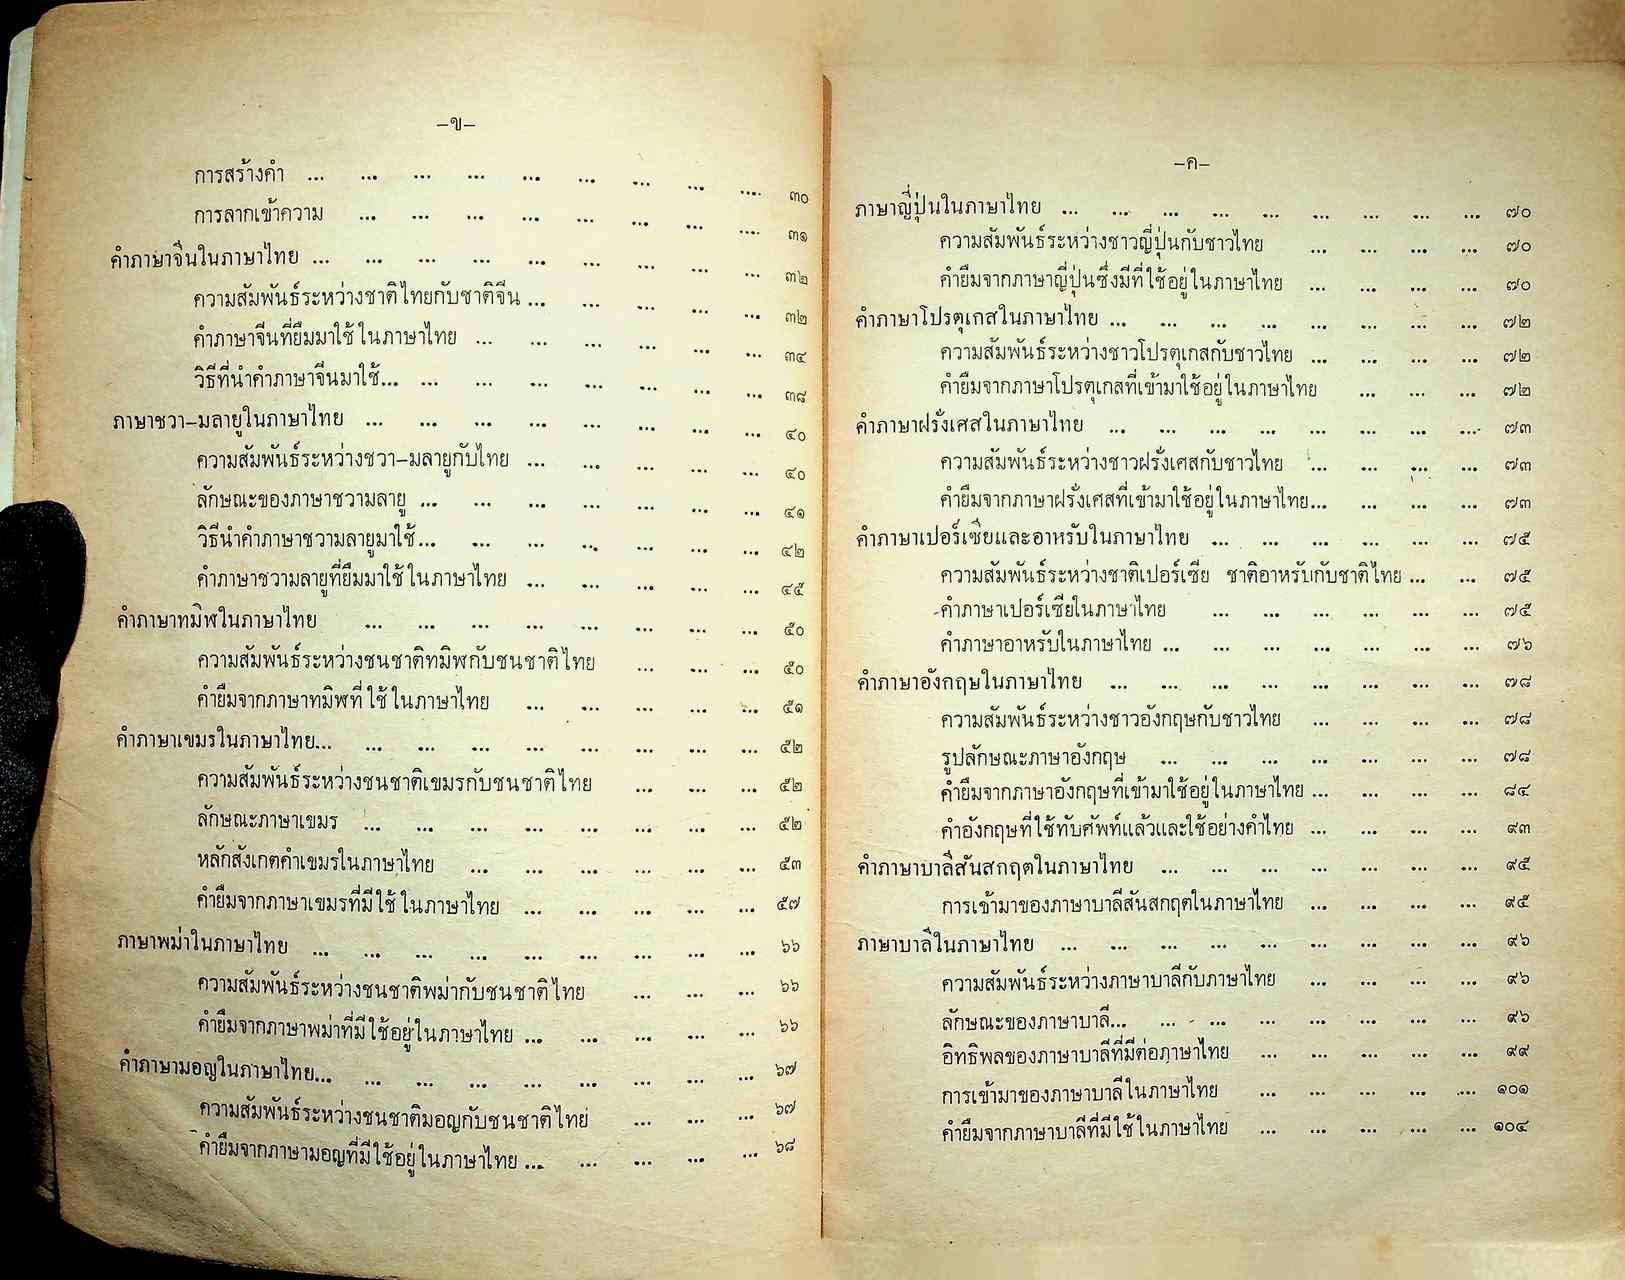 –ข–
การสร้างคำ ... ... ... ... ... ... ... ... .... ๓๐
การลากเข้าความ ... ... ... ... ... ... ... .... ๓๑
คำภาษาจีนในภาษาไทย ... ... ... ... ... ... ... ... ... ๓๒
ความสัมพันธ์ระหว่างชาติไทยกับชาติจีน ... ... ... ... ... ๓๒
คำภาษาจีนที่ยืมมาใช้ในภาษาไทย ... ... ... ... ... ... ๓๔
วิธีที่นำคำภาษาจีนมาใช้... ... ... ... ... ... ... ... ๓๘
ภาษาชวา–มลายูในภาษาไทย ... ... ... ... ... ... ... ... ๔๐
ความสัมพันธ์ระหว่างชวา–มลายูกับไทย ... ... ... ... ... ๔๐
ลักษณะของภาษาชวามลายู ... ... ... ... ... ... ... ๔๑
วิธีนำคำภาษาชวามลายูมาใช้... ... ... ... ... ... ... ๔๒
คำภาษาชวามลายูที่ยืมมาใช้ในภาษาไทย ... ... ... ... ... ๔๕
คำภาษาทมิฬในภาษาไทย ... ... ... ... ... ... ... ... ๕๐
ความสัมพันธ์ระหว่างชนชาติทมิฬกับชนชาติไทย ... ... ... ๕๐
คำยืมจากภาษาทมิฬที่ใช้ในภาษาไทย ... ... ... ... ... ๕๑
คำภาษาเขมรในภาษาไทย... ... ... ... ... ... ... ... ... ๕๒
ความสัมพันธ์ระหว่างชนชาติเขมรกับชนชาติไทย ... ... ... ๕๒
ลักษณะภาษาเขมร ... ... ... ... ... ... ... ... ๕๒
หลักสังเกตคำเขมรในภาษาไทย ... ... ... ... ... ... ๕๓
คำยืมจากภาษาเขมรที่มีใช้ในภาษาไทย ... ... ... ... ... ๕๗
ภาษาพม่าในภาษาไทย ... ... ... ... ... ... ... ... ... ๖๖
ความสัมพันธ์ระหว่างชนชาติพม่ากับชนชาติไทย ... ... ... ๖๖
คำยืมจากภาษาพม่าที่มีใช้อยู่ในภาษาไทย ... ... ... ... ... ๖๖
คำภาษามอญในภาษาไทย... ... ... ... ... ... ... ... ... ๖๗
ความสัมพันธ์ระหว่างชนชาติมอญกับชนชาติไทย ... ... ... ๖๗
คำยืมจากภาษามอญที่มีใช้อยู่ในภาษาไทย ... ... ... ... ... ๖๘
–ค–
ภาษาญี่ปุ่นในภาษาไทย ... ... ... ... ... ... ... ... ... ๗๐
ความสัมพันธ์ระหว่างชาวญี่ปุ่นกับชาวไทย ... ... ... ... ๗๐
คำยืมจากภาษาญี่ปุ่นซึ่งมีที่ใช้อยู่ในภาษาไทย ... ... ... ... ๗๐
คำภาษาโปรตุเกสในภาษาไทย ... ... ... ... ... ... ... ... ๗๒
ความสัมพันธ์ระหว่างชาวโปรตุเกสกับชาวไทย ... ... ... ... ๗๒
คำยืมจากภาษาโปรตุเกสที่เข้ามาใช้อยู่ในภาษาไทย ... ... ... ๗๒
คำภาษาฝรั่งเศสในภาษาไทย ... ... ... ... ... ... ... ... ๗๓
ความสัมพันธ์ระหว่างชาวฝรั่งเศสกับชาวไทย ... ... ... ... ๗๓
คำยืมจากภาษาฝรั่งเศสที่เข้ามาใช้อยู่ในภาษาไทย... ... ... ... ๗๓
คำภาษาเปอร์เซียและอาหรับในภาษาไทย ... ... ... ... ... ... ๗๕
ความสัมพันธ์ระหว่างชาติเปอร์เซีย ชาติอาหรับกับชาติไทย ... ... ๗๕
คำภาษาเปอร์เซียในภาษาไทย ... ... ... ... ... ... ๗๕
คำภาษาอาหรับในภาษาไทย ... ... ... ... ... ... ... ๗๖
คำภาษาอังกฤษในภาษาไทย ... ... ... ... ... ... ... ... ๗๘
ความสัมพันธ์ระหว่างชาวอังกฤษกับชาวไทย ... ... ... ... ๗๘
รูปลักษณะภาษาอังกฤษ ... ... ... ... ... ... ... ๗๘
คำยืมจากภาษาอังกฤษที่เข้ามาใช้อยู่ในภาษาไทย ... ... ... ... ๘๔
คำอังกฤษที่ใช้ทับศัพท์แล้วและใช้อย่างคำไทย ... ... ... ... ๙๓
คำภาษาบาลีสันสกฤตในภาษาไทย ... ... ... ... ... ... ... ๙๕
การเข้ามาของภาษาบาลีสันสกฤตในภาษาไทย ... ... ... ... ๙๕
ภาษาบาลีในภาษาไทย ... ... ... ... ... ... ... ... ... ๙๖
ความสัมพันธ์ระหว่างภาษาบาลีกับภาษาไทย ... ... ... ... ๙๖
ลักษณะของภาษาบาลี... ... ... ... ... ... ... ... ๙๖
อิทธิพลของภาษาบาลีที่มีต่อภาษาไทย ... ... ... ... ... ๙๙
การเข้ามาของภาษาบาลีในภาษาไทย ... ... ... ... ... ๑๐๑
คำยืมจากภาษาบาลีที่มีใช้ในภาษาไทย ... ... ... ... ... ๑๐๔